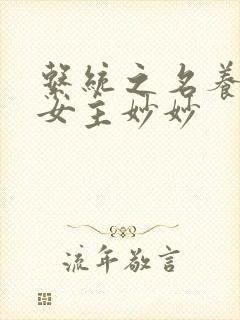 繫統之名養
女主妙妙
流年敬言